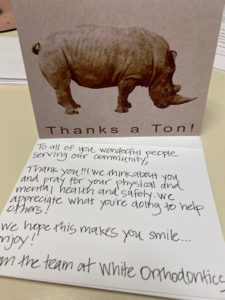 Thanks a Ton!
To all of you wonderful people
serving our community,
Thank you!!! We think about you
and pray for your physical and
mental health and safety. We
appreciate what you're doing to help
others!
We hope this makes you smile...
njoy!
om the team at White Orthodontics